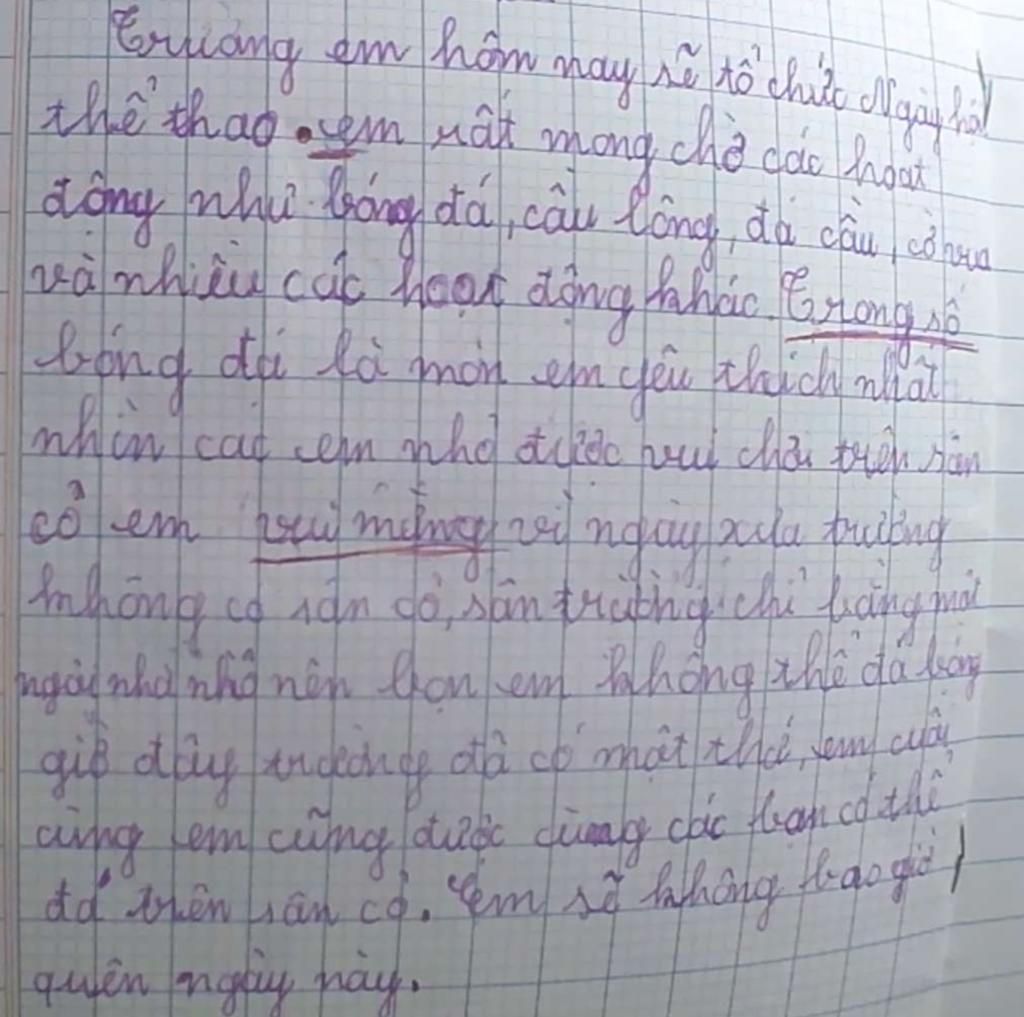 Trường em hôm nay sẽ tổ chức Ngày hội
thể thao. em rất mong chờ các hoạt
động như bóng đá, cầu lông, đá cầu, cờ vua
và nhiều các hoạt động khác. Trong số
bóng đá là môn em yêu thích nhất
nhìn các em nhỏ được vui chơi trên sân
cỏ em vui mừng vì ngày xưa trường
không có sân cỏ, sân trường chỉ bằng một
ngôi nhà nhỏ nên bọn em không thể đá bóng
giờ đây trường đã có một thứ, em cuối
cùng em cũng được cùng các bạn có thể
đá trên sân cỏ. Em sẽ không bao giờ
quên ngày này.